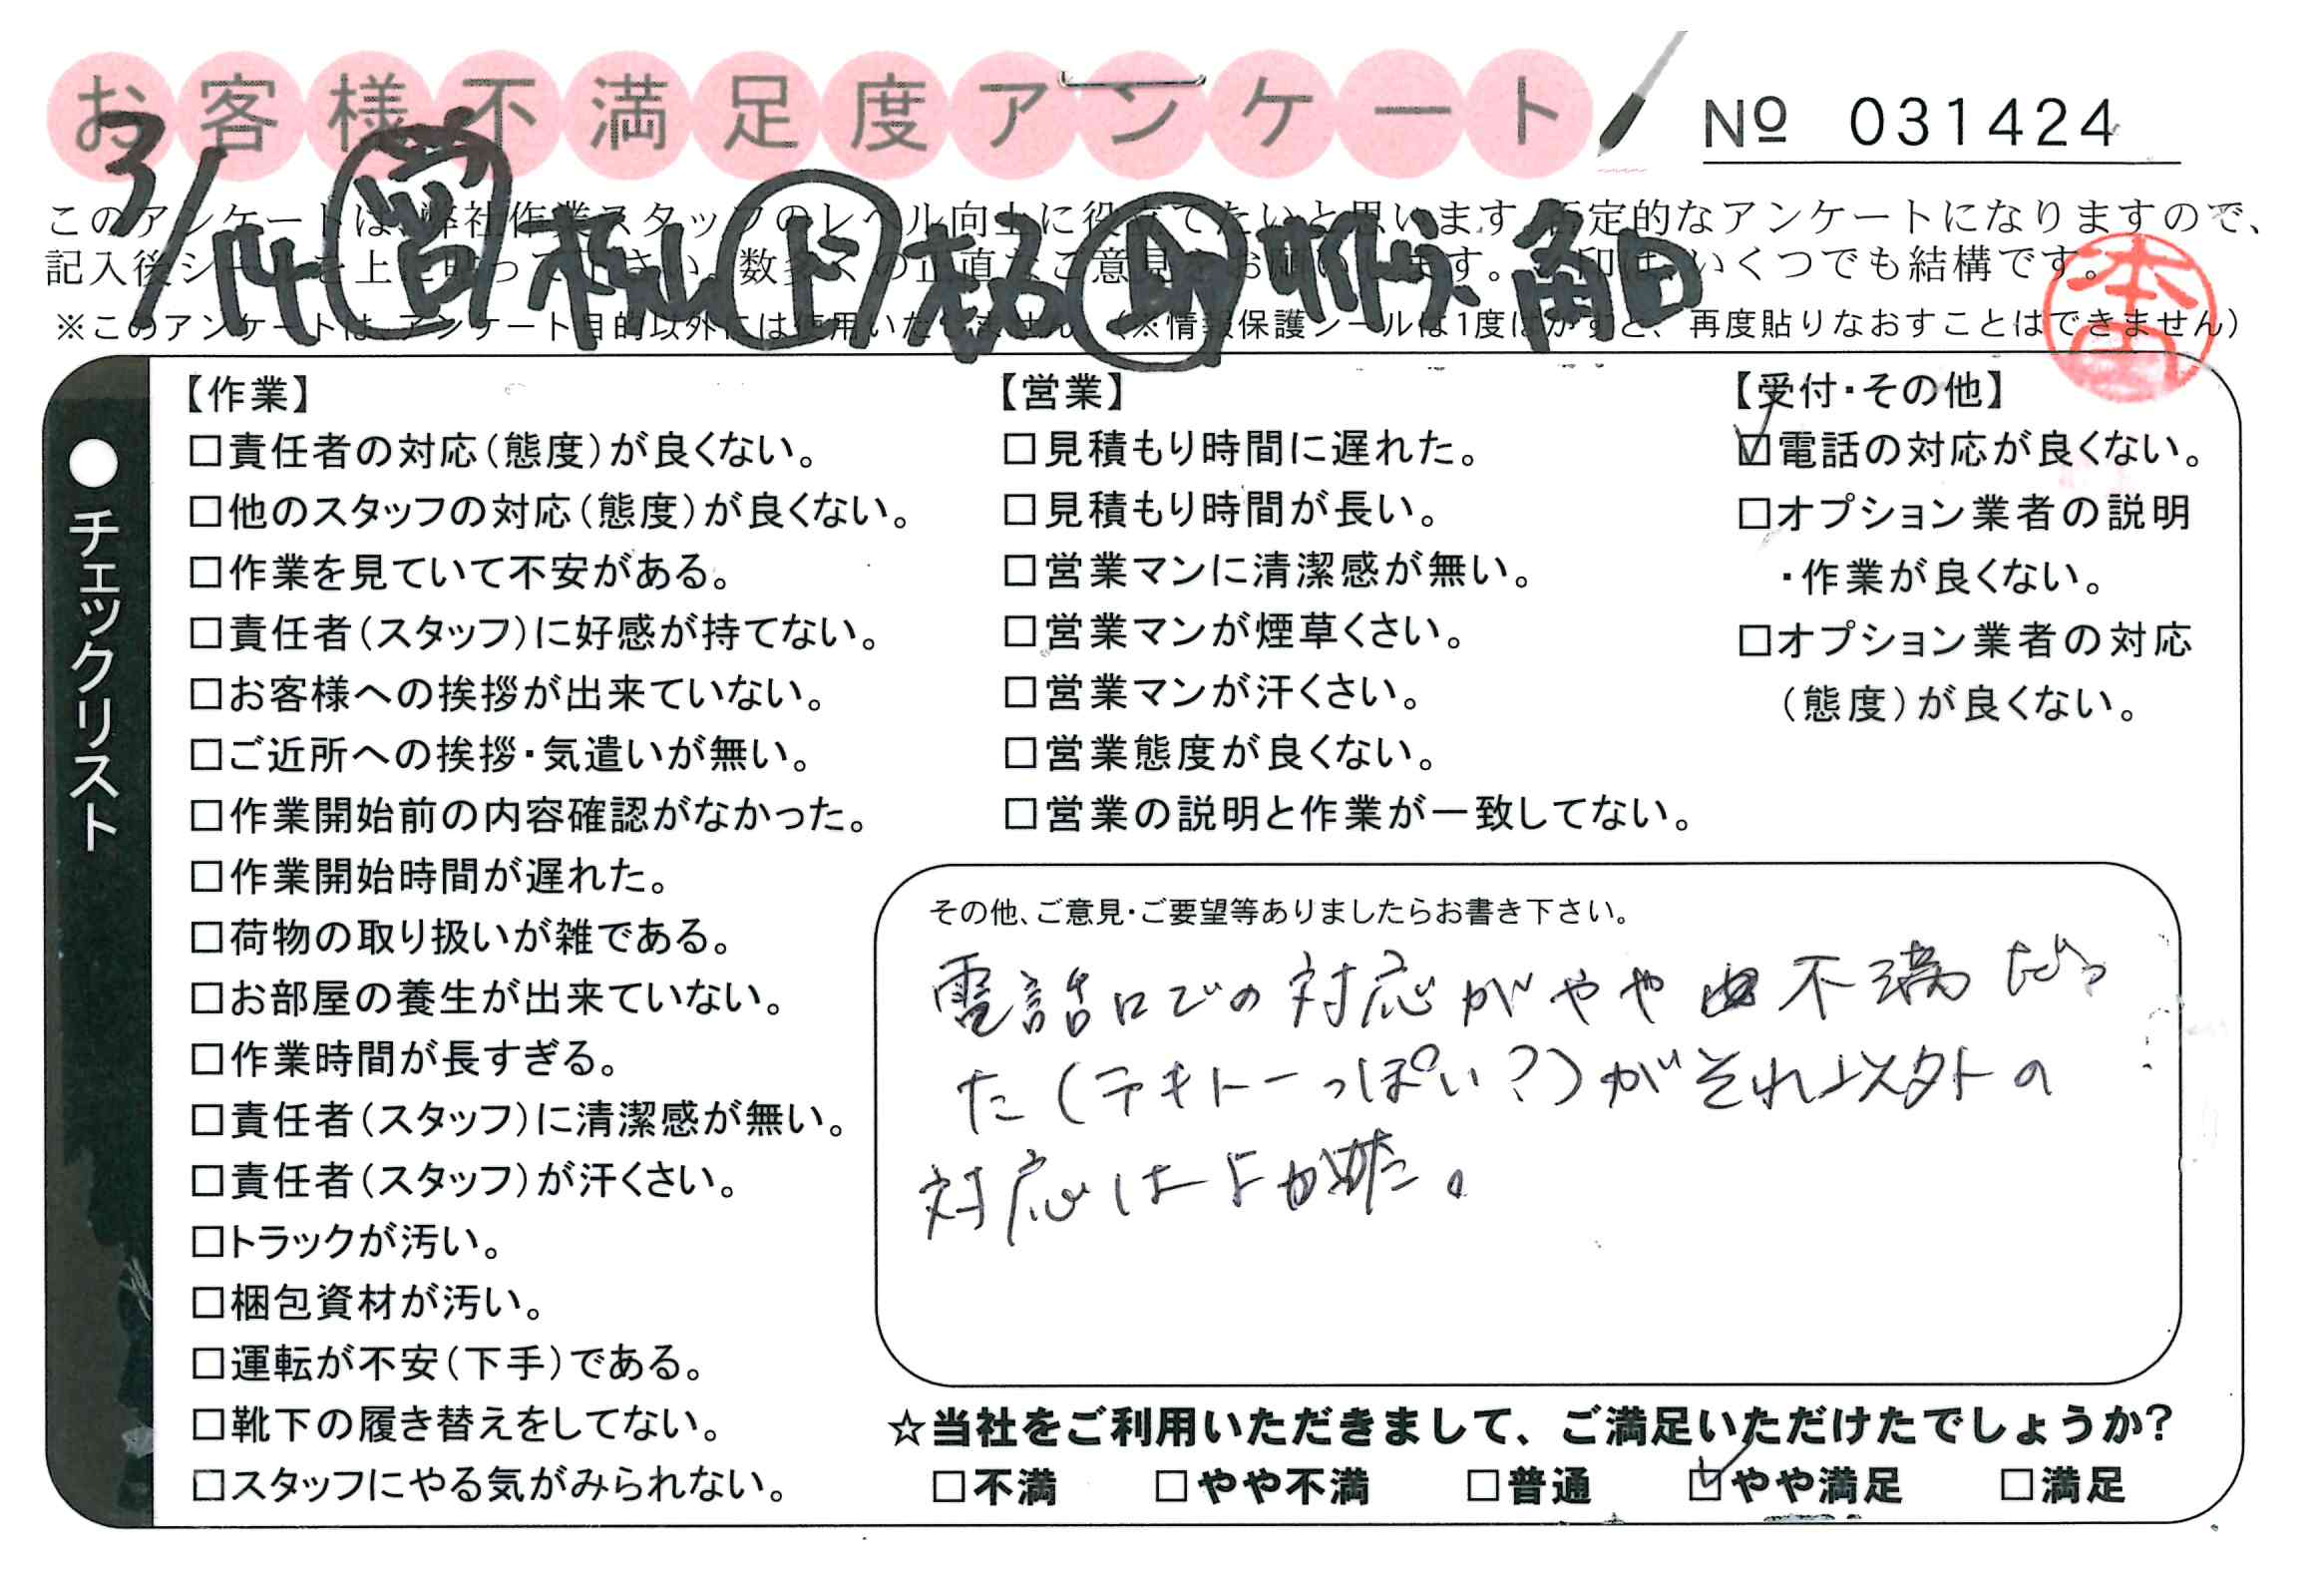 お客様不満足度アンケート
№ 031424
3/14 営 ド 助 角田
このアンケートは、弊社作業スタッフのレベル向上に役立てたいと思います。否定的なアンケートになりますので、
記入後シールを上に貼って下さい。数多くの正直なご意見をお願いします。 印は、いくつでも結構です。
※このアンケートは、アンケート目的以外には使用いたしません。（※情報保護シールは1度はがすと、再度貼りなおすことはできません）
●チェックリスト
【作業】
□責任者の対応（態度）が良くない。
□他のスタッフの対応（態度）が良くない。
□作業を見ていて不安がある。
□責任者（スタッフ）に好感が持てない。
□お客様への挨拶が出来ていない。
□ご近所への挨拶・気遣いが無い。
□作業開始前の内容確認がなかった。
□作業開始時間が遅れた。
□荷物の取り扱いが雑である。
□お部屋の養生が出来ていない。
□作業時間が長すぎる。
□責任者（スタッフ）に清潔感が無い。
□責任者（スタッフ）が汗くさい。
□トラックが汚い。
□梱包資材が汚い。
□運転が不安（下手）である。
□靴下の履き替えをしてない。
□スタッフにやる気がみられない。
【営業】
□見積もり時間に遅れた。
□見積もり時間が長い。
□営業マンに清潔感が無い。
□営業マンが煙草くさい。
□営業マンが汗くさい。
□営業態度が良くない。
□営業の説明と作業が一致してない。
【受付・その他】
☑電話の対応が良くない。
□オプション業者の説明
・作業が良くない。
□オプション業者の対応
（態度）が良くない。
その他、ご意見・ご要望等ありましたらお書き下さい。
電話口での対応がやや不満だっ
た（テキトーっぽい？）がそれ以外の
対応はよかった。
☆当社をご利用いただきまして、ご満足いただけたでしょうか？
□不満 □やや不満 □普通 ☑やや満足 □満足